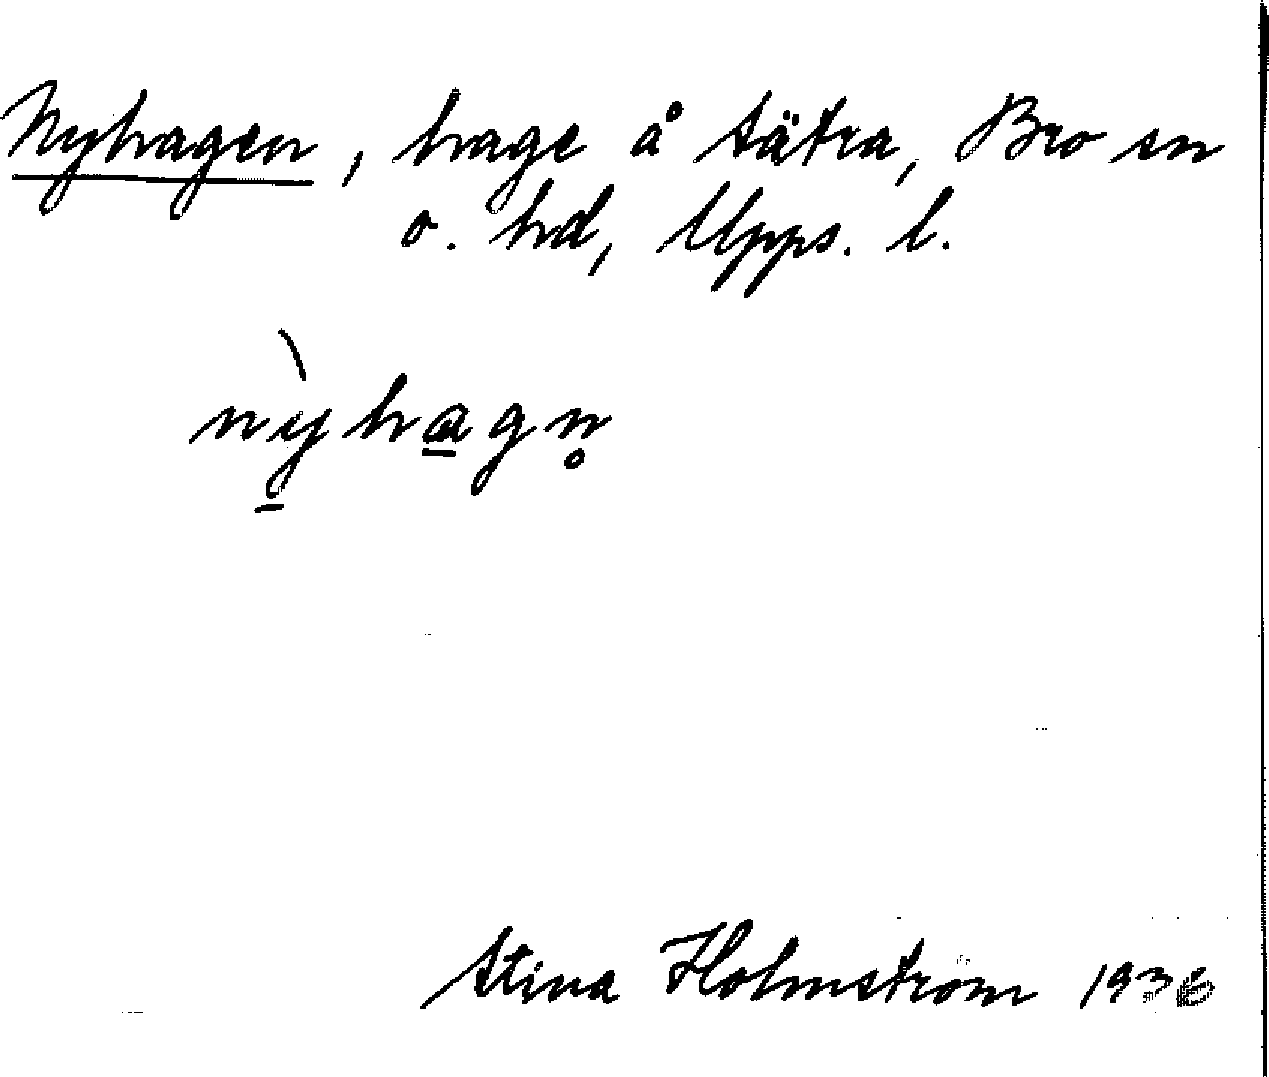 Nyhagen, hage å Sätra, Bro sn
o. hd, Upps. l.
nỳhagn̥
Stina Holmström 1936